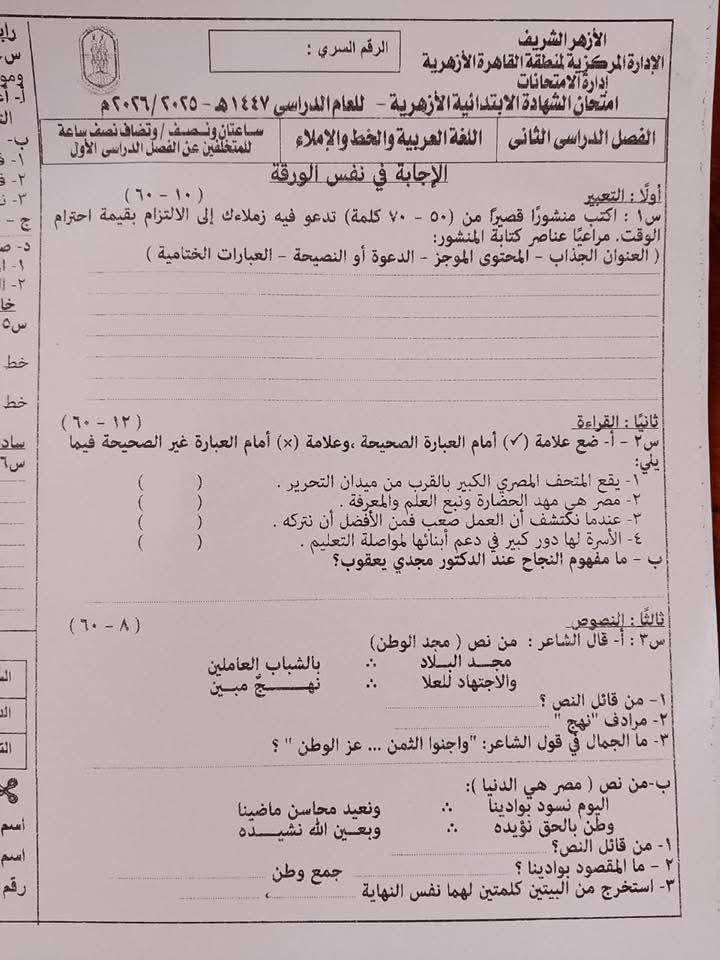 الأزهر الشريف
الإدارة المركزية لمنطقة القاهرة الأزهرية
إدارة الامتحانات
الرقم السري :
امتحان الشهادة الابتدائية الأزهرية - للعام الدراسى ١٤٤٧هـ - ٢٠٢٥/٢٠٢٦م
الفصل الدراسى الثانى
اللغة العربية والخط والإملاء
ساعتان ونصف / وتضاف نصف ساعة
للمتخلفين عن الفصل الدراسى الأول
الإجابة في نفس الورقة
أولًا : التعبير (١٠ - ٦٠)
س١ : اكتب منشورًا قصيرًا من (٥٠ - ٧٠ كلمة) تدعو فيه زملاءك إلى الالتزام بقيمة احترام
الوقت. مراعيًا عناصر كتابة المنشور:
( العنوان الجذاب - المحتوى الموجز - الدعوة أو النصيحة - العبارات الختامية )
ثانيًا : القراءة (١٢ - ٦٠)
س٢ - أ- ضع علامة (✓) أمام العبارة الصحيحة ،وعلامة (×) أمام العبارة غير الصحيحة فيما
يلي:
١- يقع المتحف المصري الكبير بالقرب من ميدان التحرير . ( )
٢- مصر هي مهد الحضارة ونبع العلم والمعرفة . ( )
٣- عندما نكتشف أن العمل صعب فمن الأفضل أن نتركه . ( )
٤- الأسرة لها دور كبير في دعم أبنائها لمواصلة التعليم . ( )
ب - ما مفهوم النجاح عند الدكتور مجدي يعقوب؟
ثالثًا : النصوص (٨ - ٦٠)
س٣ : أ- قال الشاعر : من نص ( مجد الوطن)
مجـد البـلاد ∴ بالشباب العاملين
والاجتهاد للعلا ∴ نهـــجٌ مبـين
١- من قائل النص ؟
٢- مرادف "نهج "
٣- ما الجمال في قول الشاعر: "واجنوا الثمن ... عز الوطن " ؟
ب-من نص ( مصر هي الدنيا ):
اليوم نسود بوادينا ∴ ونعيد محاسن ماضينا
وطن بالحق نؤيده ∴ وبعين الله نشيــده
١- من قائل النص؟
٢ - ما المقصود بوادينا ؟ جمع وطن
٣- استخرج من البيتين كلمتين لهما نفس النهاية ،